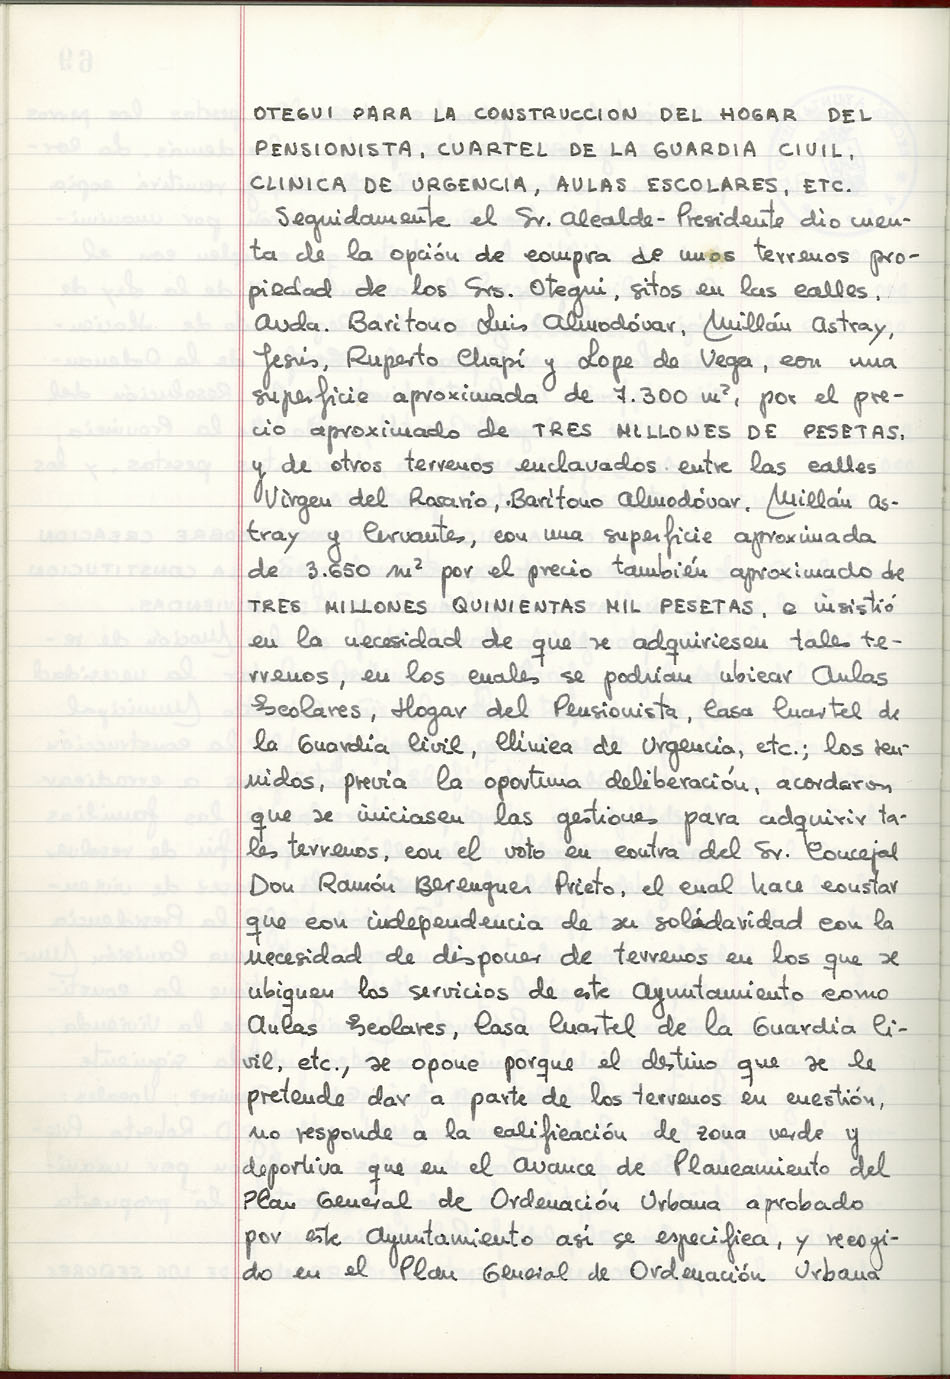 OTEGUI PARA LA CONSTRUCCION DEL HOGAR DEL
PENSIONISTA, CUARTEL DE LA GUARDIA CIVIL,
CLINICA DE URGENCIA, AULAS ESCOLARES, ETC.
Seguidamente el Sr. Alcalde-Presidente dio cuen-
ta de la opción de compra de unos terrenos pro-
piedad de los Srs. Otegui, sitos en las calles,
Avda. Baritono Luis Almodóvar, Millán Astray,
Jesús, Ruperto Chapí y Lope de Vega, con una
superficie aproximada de 7.300 m², por el pre-
cio aproximado de TRES MILLONES DE PESETAS,
y de otros terrenos enclavados entre las calles
Virgen del Rosario, Barítono Almodóvar, Millán As-
tray y Cervantes, con una superficie aproximada
de 3.650 m² por el precio también aproximado de
TRES MILLONES QUINIENTAS MIL PESETAS, e insistió
en la necesidad de que se adquiriesen tales te-
rrenos, en los cuales se podrían ubicar Aulas
Escolares, Hogar del Pensionista, Casa Cuartel de
la Guardia Civil, Clínica de Urgencia, etc.; los reu-
nidos, previa la oportuna deliberación, acordaron
que se iniciasen las gestiones para adquirir ta-
les terrenos, con el voto en contra del Sr. Concejal
Don Ramón Berenguer Prieto, el cual hace constar
que con independencia de su solidaridad con la
necesidad de disponer de terrenos en los que se
ubiquen los servicios de este Ayuntamiento como
Aulas Escolares, Casa Cuartel de la Guardia Ci-
vil, etc., se opone porque el destino que se le
pretende dar a parte de los terrenos en cuestión,
no responde a la calificación de zona verde y
deportiva que en el Avance de Planeamiento del
Plan General de Ordenación Urbana aprobado
por este Ayuntamiento así se especifica, y recogi-
do en el Plan General de Ordenación Urbana